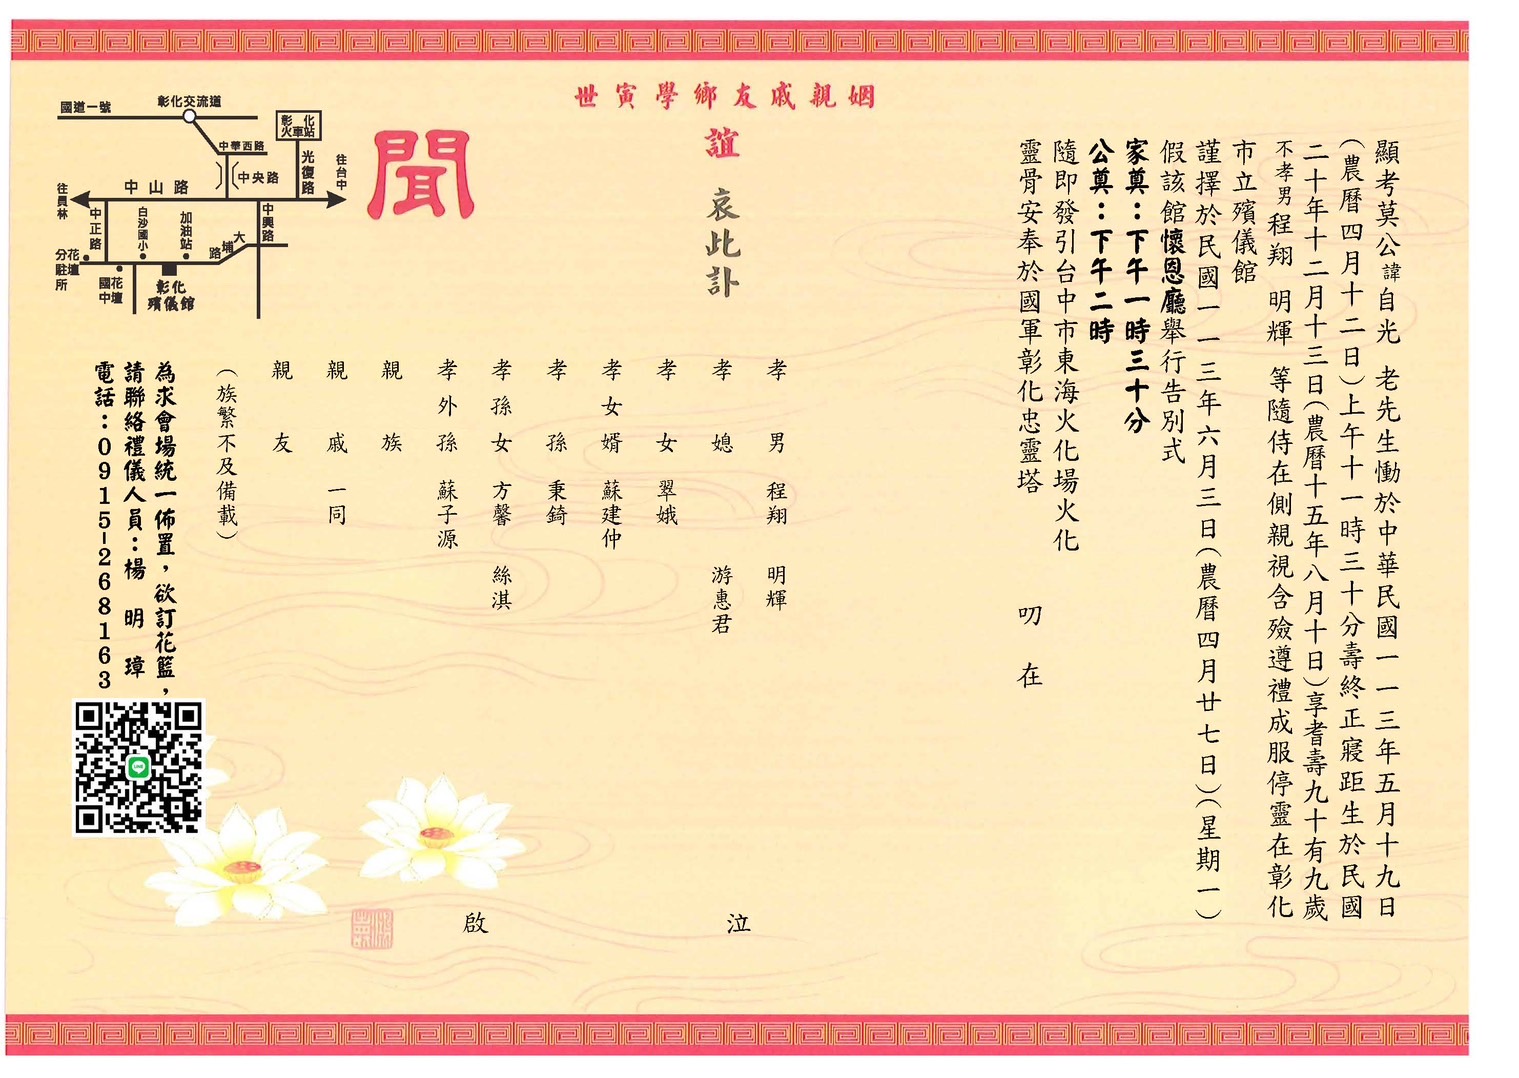 顯考莫公諱自光 老先生慟於中華民國一一三年五月十九日
(農曆四月十二日)上午十一時三十分壽終正寢距生於民國
二十年十二月十三日(農曆十五年八月十日)享耆壽九十有九歲
不孝男程翔 明輝 等隨侍在側親視含殮遵禮成服停靈在彰化
市立殯儀館
謹擇於民國一一三年六月三日(農曆四月廿七日)(星期一)
假該館懷恩廳舉行告別式
家奠:下午一時三十分
公奠:下午二時
隨即發引台中市東海火化場火化
靈骨安奉於國軍彰化忠靈塔 叨在
姻親戚友鄉學寅世
誼 哀此訃
聞
孝男 程翔 明輝
孝媳 游惠君
孝女 翠娥
孝女婿 蘇建仲
孝孫 秉錡
孝孫女 方馨 絲淇
孝外孫 蘇子源
親族
親戚 一同
親友
(族繁不及備載)
泣
啟
為求會場統一佈置,欲訂花籃,
請聯絡禮儀人員:楊 明 璋
電話:0915-268163
國道一號
彰化交流道
彰化
火車站
中華西路
光復路
往台中
中央路
中山路
往員林
中正路
白沙國小
加油站
中興路
大埔路
花壇
分駐所
花壇
國中
彰化
殯儀館
LINE